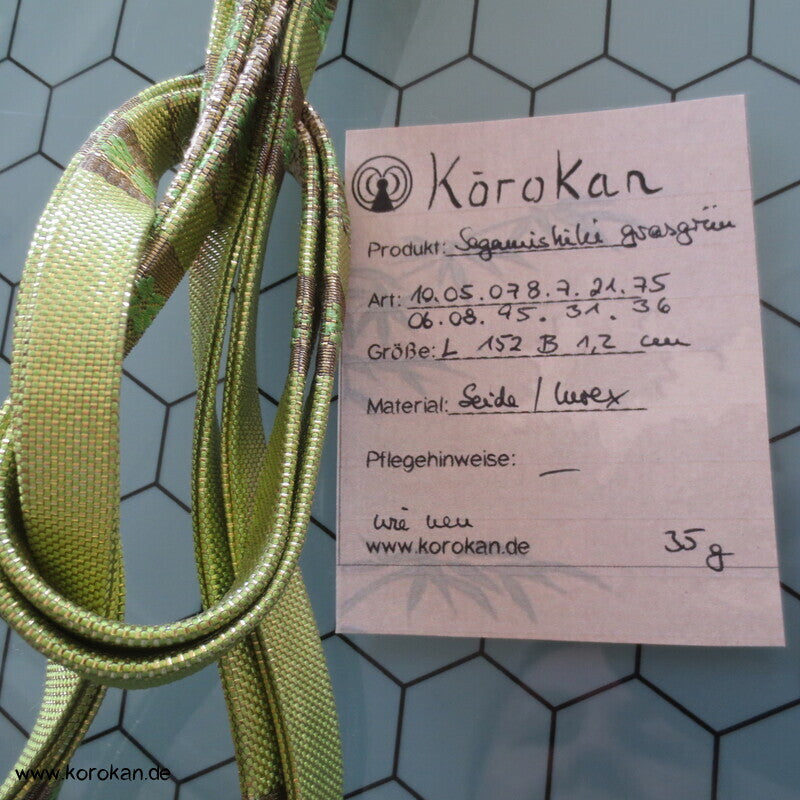 Kōrokan
Produkt: Sagamishiki grasgrün
Art: 10.05.078.7.21.75
06.08.95.31.36
Größe: L 152 B 1,2 cm
Material: Seide / Lurex
Pflegehinweise: —
wie neu
www.korokan.de 35 g
www.korokan.de